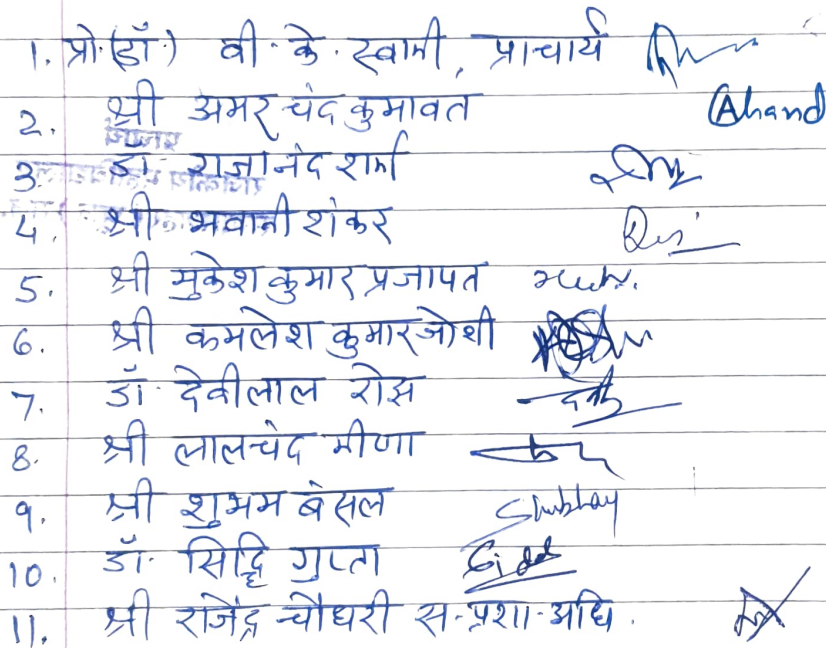 1. प्रो. (डॉ.) बी. के. स्वामी, प्राचार्य
2. श्री अमर चंद कुमावत Ahand
3. डॉ. राजानंद शर्मा
4. श्री भवानी शंकर
5. श्री मुकेश कुमार प्रजापत
6. श्री कमलेश कुमार जोशी
7. डॉ. देवीलाल रोझ
8. श्री लालचंद मीणा
9. श्री शुभम बंसल Shubham
10. डॉ. सिद्धि गुप्ता
11. श्री राजेंद्र चौधरी स. प्रशा. अधि.